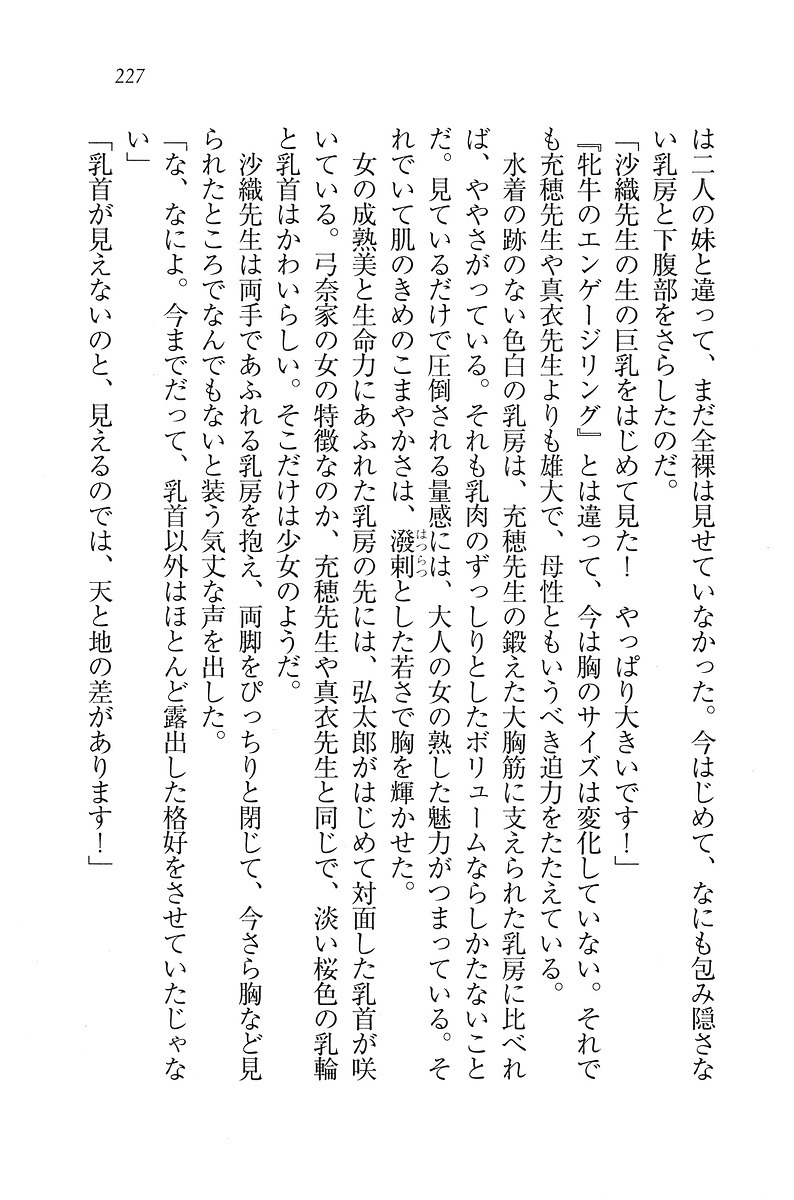 227
は二人の妹と違って、まだ全裸は見せていなかった。今はじめて、なにも包み隠さな
い乳房と下腹部をさらしたのだ。
「沙織先生の生の巨乳をはじめて見た！　やっぱり大きいです！」
『牝牛のエンゲージリング』とは違って、今は胸のサイズは変化していない。それで
も充穂先生や真衣先生よりも雄大で、母性ともいうべき迫力をたたえている。
水着の跡のない色白の乳房は、充穂先生の鍛えた大胸筋に支えられた乳房に比べれ
ば、ややさがっている。それも乳肉のずっしりとしたボリュームならしかたないこと
だ。見ているだけで圧倒される量感には、大人の女の熟した魅力がつまっている。そ
れでいて肌のきめのこまやかさは、潑剌とした若さで胸を輝かせた。
はつらつ
女の成熟美と生命力にあふれた乳房の先には、弘太郎がはじめて対面した乳首が咲
いている。弓奈家の女の特徴なのか、充穂先生や真衣先生と同じで、淡い桜色の乳輪
と乳首はかわいらしい。そこだけは少女のようだ。
沙織先生は両手であふれる乳房を抱え、両脚をぴっちりと閉じて、今さら胸など見
られたところでなんでもないと装う気丈な声を出した。
「な、なによ。今までだって、乳首以外はほとんど露出した格好をさせていたじゃな
い」
「乳首が見えないのと、見えるのでは、天と地の差があります！」